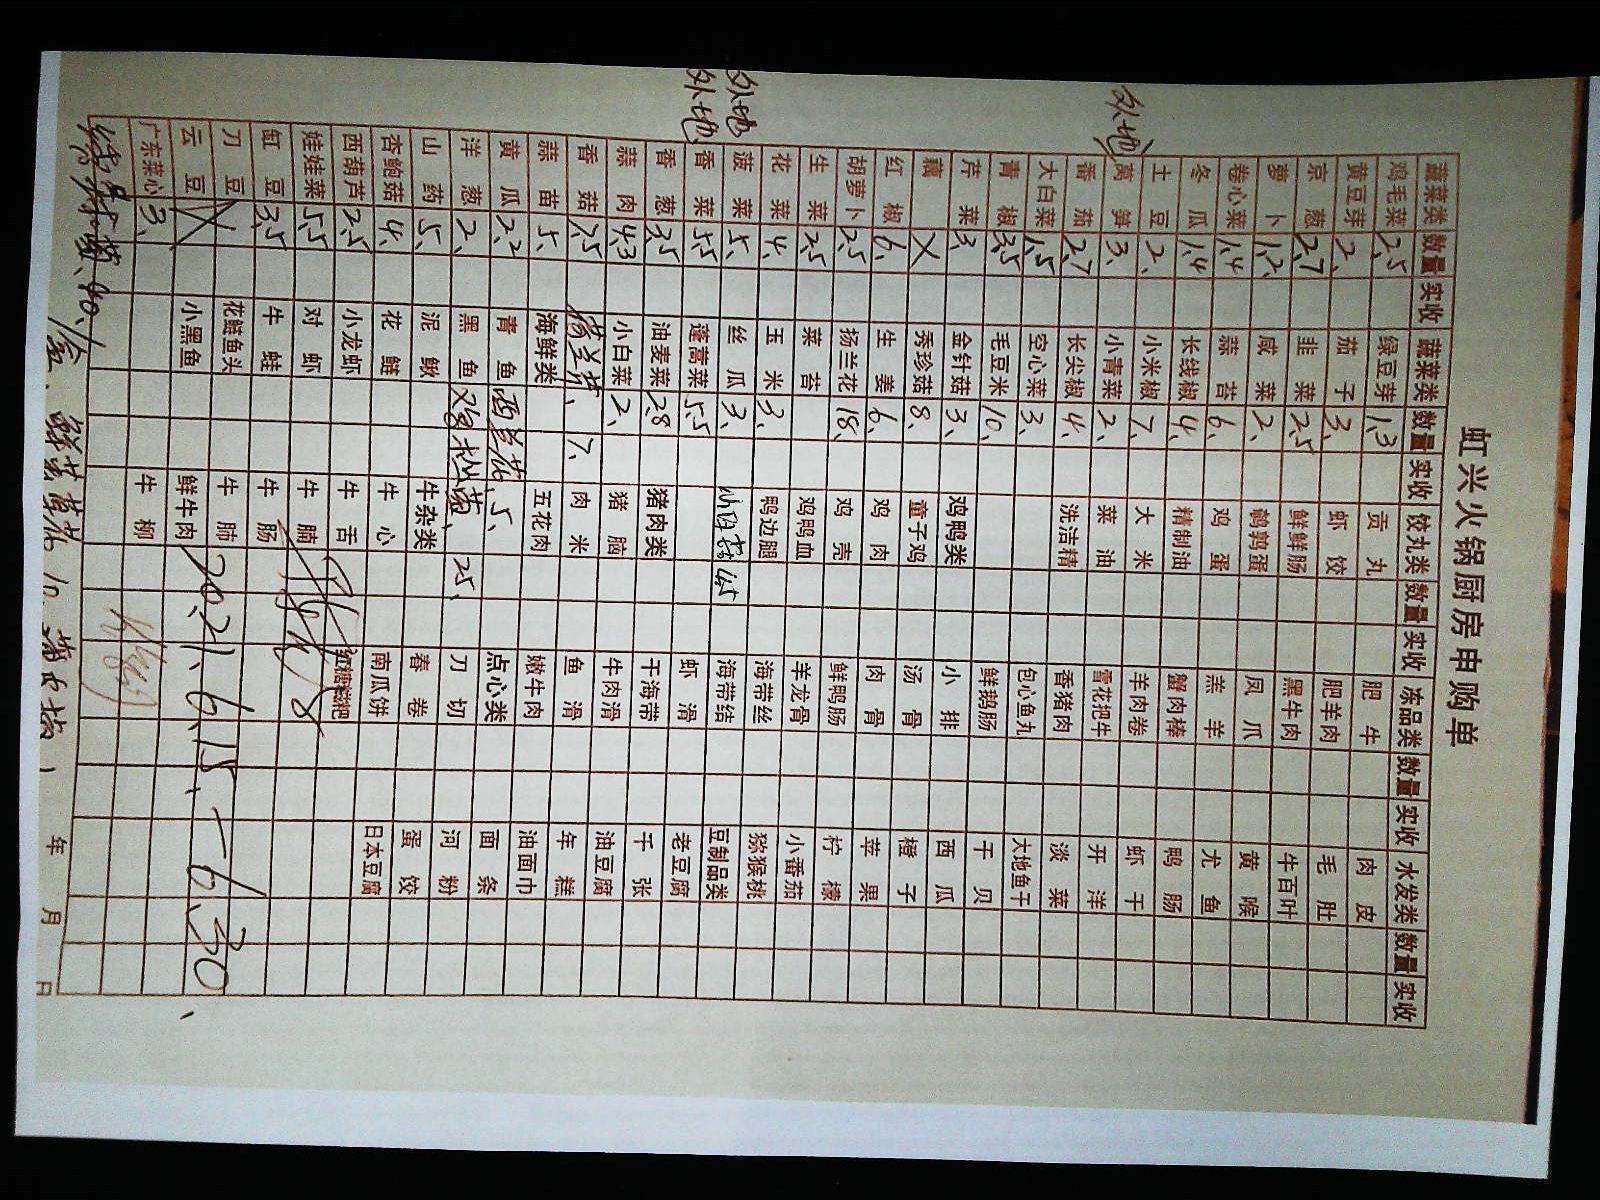 虹兴火锅厨房申购单
蔬菜类 数量 实收 蔬菜类 数量 实收 饺丸类 数量 实收 冻品类 数量 实收 水发类 数量 实收
鸡毛菜 2.5 绿豆芽 1.3 贡丸 肥牛 肉皮
黄豆芽 2、 茄子 3、 虾饺 肥羊肉 毛肚
京葱 2.7 韭菜 2.5 鲜鲜肠 黑牛肉 牛百叶
萝卜 1.2 咸菜 2、 鹌鹑蛋 凤爪 黄喉
卷心菜 1.4 蒜苔 6、 鸡蛋 羔羊 尤鱼
冬瓜 1.4 长线椒 4、 精制油 蟹肉棒 鸭肠
土豆 2、 小米椒 7、 大米 羊肉卷 虾干
外地 莴笋 3、 小青菜 2、 菜油 雪花把牛 开洋
番茄 2.7 长尖椒 4、 洗洁精 香猪肉 淡菜
大白菜 1.5 空心菜 3、 包心鱼丸 大地鱼干
青椒 3.5 毛豆米 10、 鲜鹅肠 干贝
芹菜 3、 金针菇 3、 鸡鸭类 小排 西瓜
藕 X 秀珍菇 8、 童子鸡 汤骨 橙子
红椒 6、 生姜 6、 鸡肉 肉骨 苹果
胡萝卜 2.5 扬兰花 18、 鸡壳 鲜鸭肠 柠檬
生菜 2.5 菜苔 鸡鸭血 羊龙骨 小番茄
花菜 4、 玉米 3、 鸭边腿 海带丝 猕猴桃
外地 菠菜 5、 丝瓜 3、 4.5 海带结 豆制品类
外地 香菜 5.5 蓬蒿菜 5.5 虾滑 老豆腐
香葱 3.5 油麦菜 2.8 猪肉类 干海带 千张
蒜肉 4.3 小白菜 2、 猪脑 牛肉滑 油豆腐
香菇 7.5 7、 肉米 鱼滑 年糕
蒜苗 5、 海鲜类 五花肉 嫩牛肉 油面巾
黄瓜 2.2 青鱼 5、 点心类 面条
洋葱 2、 黑鱼 25、 刀切 河粉
山药 5、 泥鳅 牛杂类 春卷 蛋饺
杏鲍菇 4、 花鲢 牛心 南瓜饼 日本豆腐
西葫芦 2.5 小龙虾 牛舌 红糖糍粑
娃娃菜 5.5 对虾 牛腩
豇豆 3.5 牛蛙 牛肠
刀豆 X 花鲢鱼头 牛肺
云豆 X 小黑鱼 鲜牛肉 2021.6.15、—6.30、
广东菜心 3、 牛柳
年 月 日